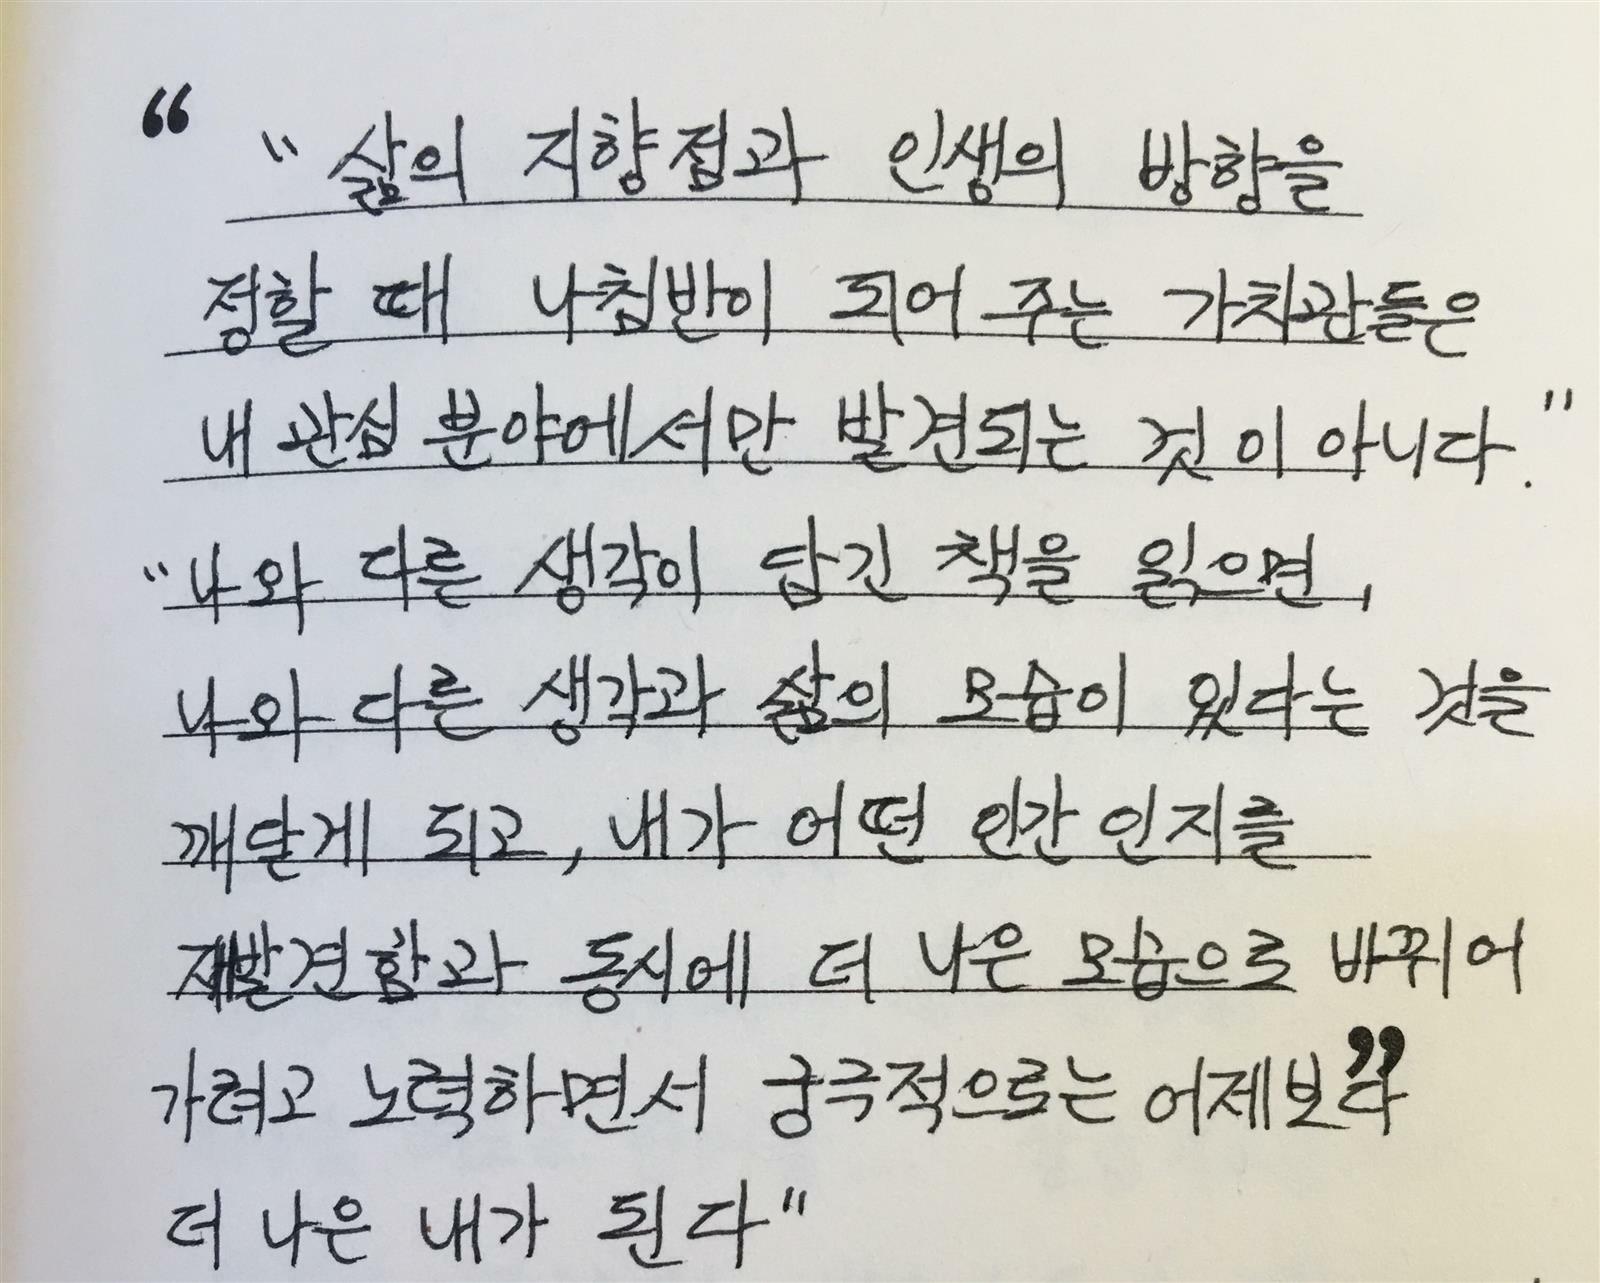 “ “삶의 지향점과 인생의 방향을
정할 때 나침반이 되어 주는 가치관들은
내 관심 분야에서만 발견되는 것이 아니다.”
“나와 다른 생각이 담긴 책을 읽으면,
나와 다른 생각과 삶의 모습이 있다는 것을
깨닫게 되고, 내가 어떤 인간인지를
재발견함과 동시에 더 나은 모습으로 바뀌어
가려고 노력하면서 궁극적으로는 어제보다 ”
더 나은 내가 된다”